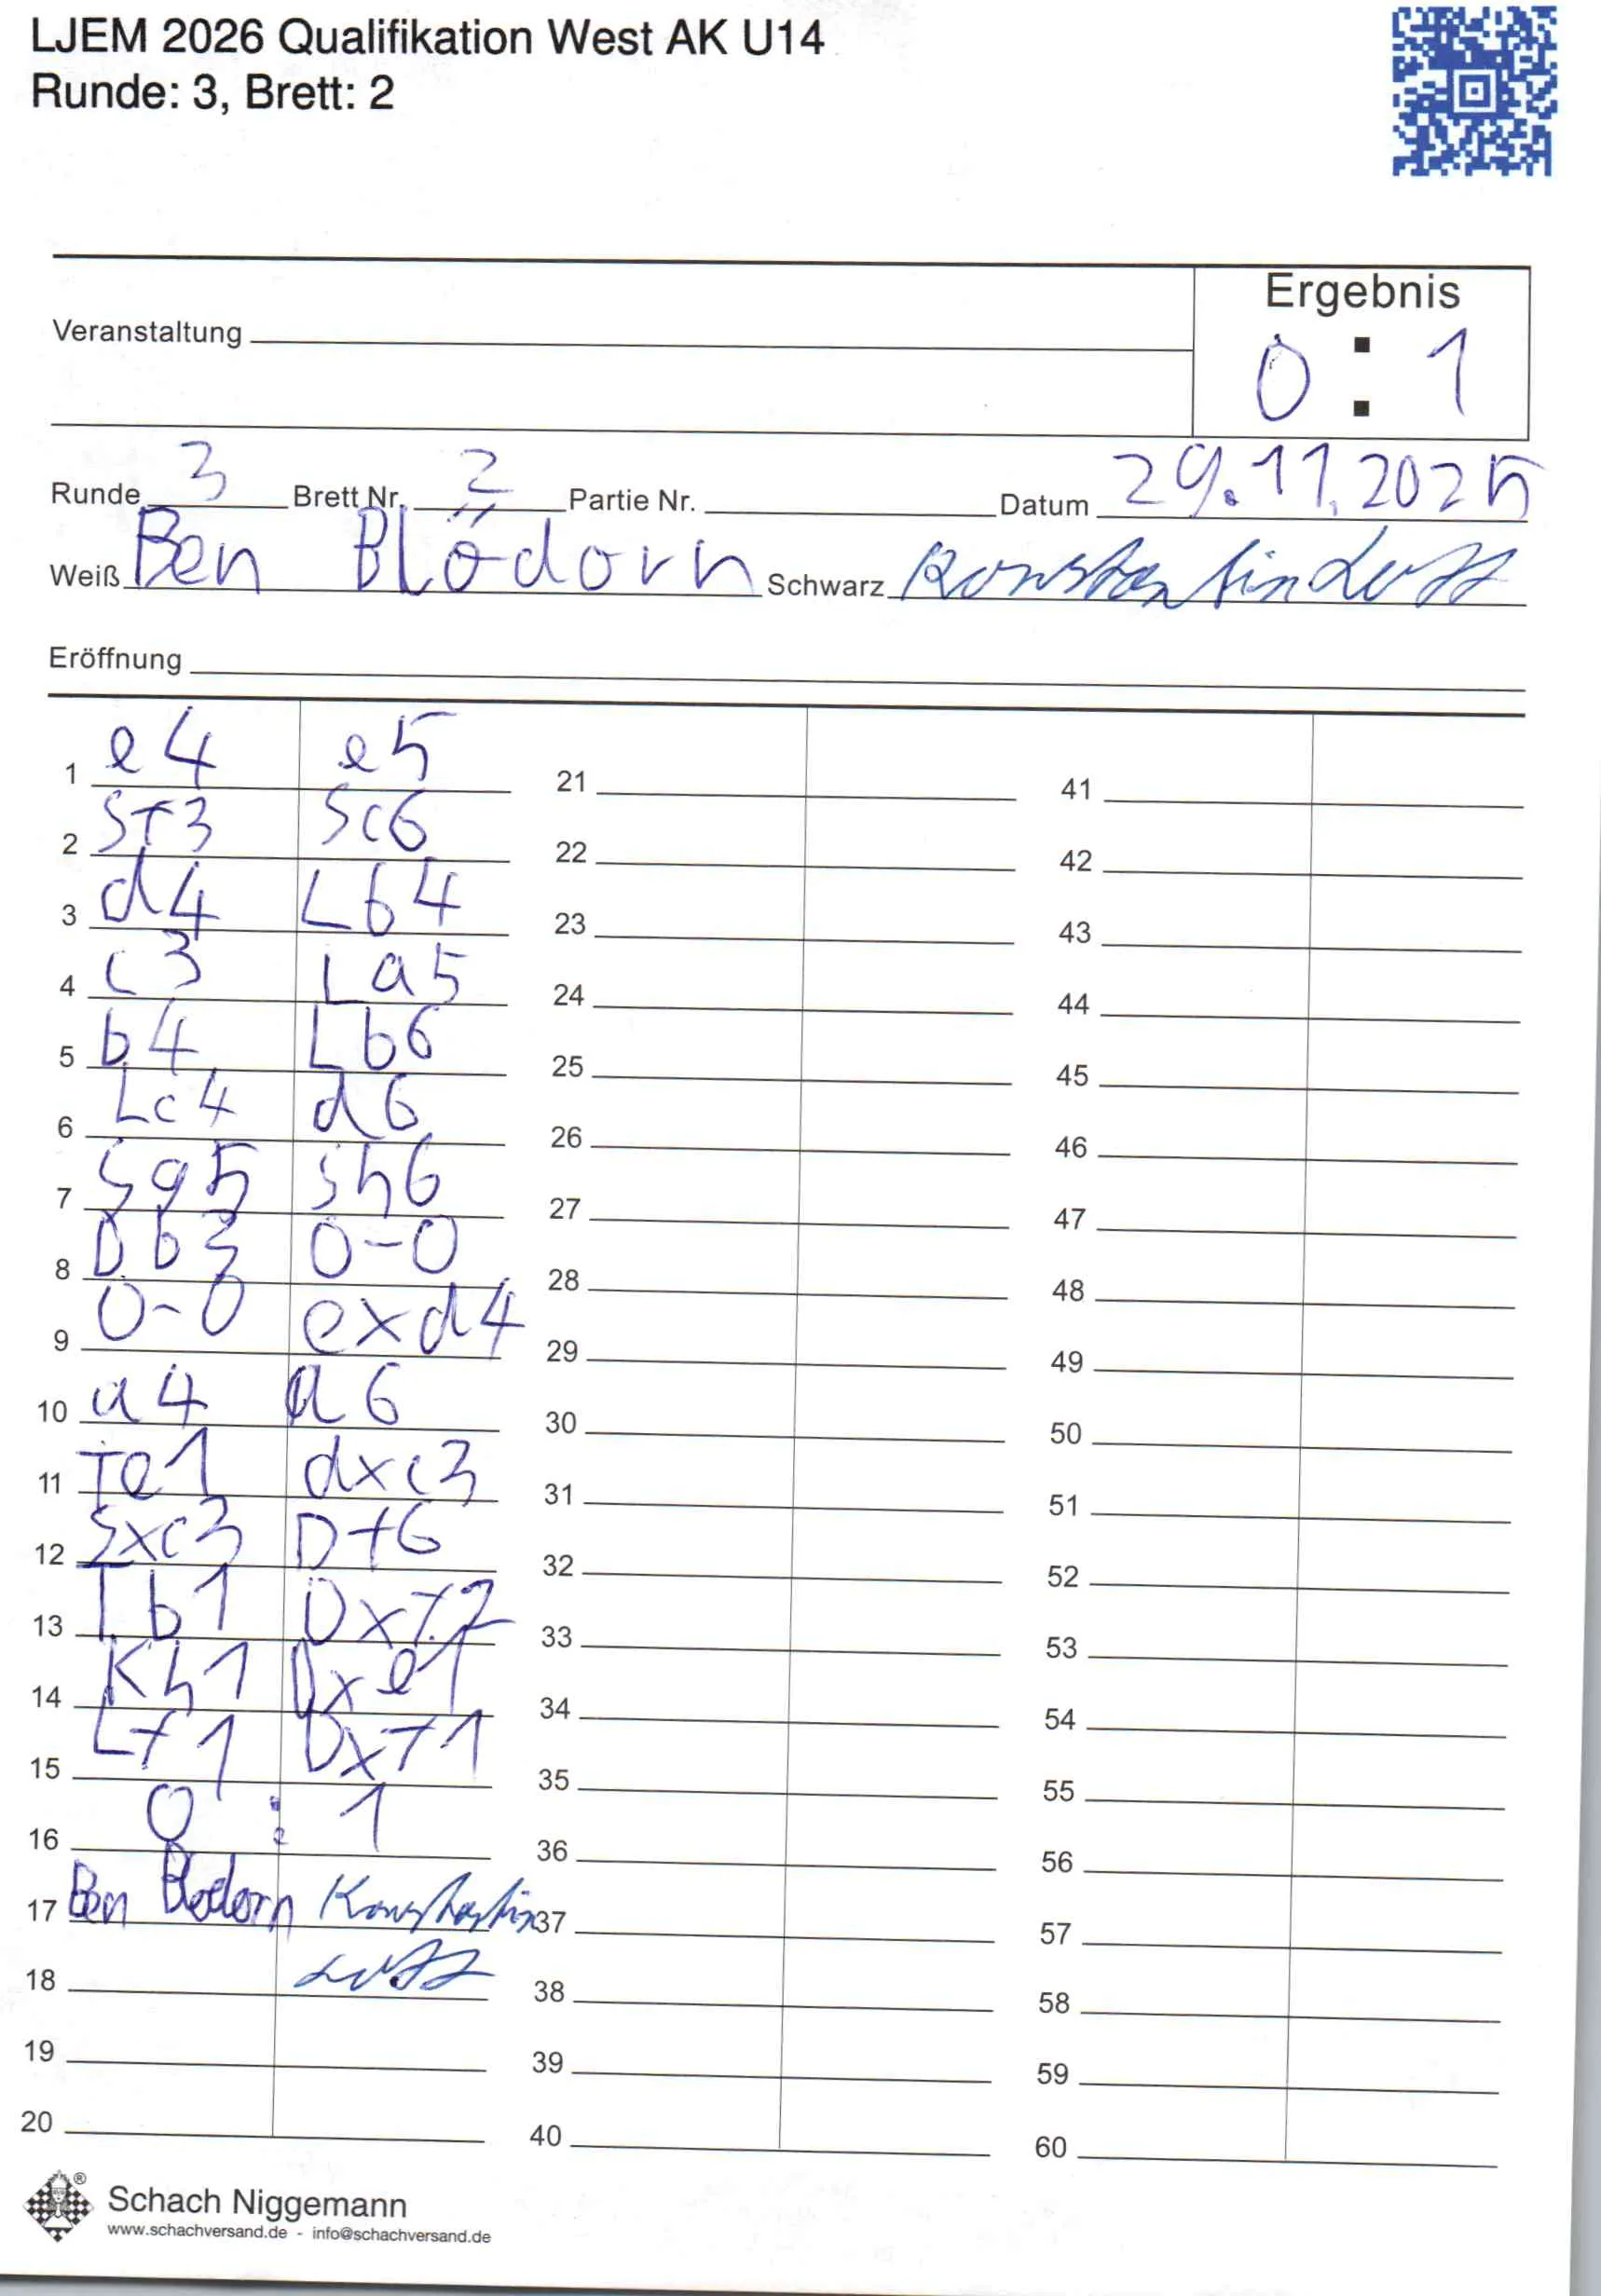 LJEM 2026 Qualifikation West AK U14
Runde: 3, Brett: 2
Ergebnis
0 : 1
Veranstaltung
Runde 3 Brett Nr. 2 Partie Nr. Datum 29.11.2025
Weiß Ben Blödorn Schwarz Konstantin
Eröffnung
1 e4 e5 21 41
2 Sf3 Sc6 22 42
3 d4 Lb4 23 43
4 c3 La5 24 44
5 b4 Lb6 25 45
6 Lc4 d6 26 46
7 Sg5 Sh6 27 47
8 Db3 0-0 28 48
9 0-0 exd4 29 49
10 a4 a6 30 50
11 Te1 dxc3 31 51
12 Sxc3 Df6 32 52
13 Tb1 Dxf2 33 53
14 Kh1 Dxe1 34 54
15 Lf1 Dxf1 35 55
16 0 : 1 36 56
17 Ben Bloedorn Konstantin 37 57
18 38 58
19 39 59
20 40 60
Schach Niggemann
www.schachversand.de - info@schachversand.de